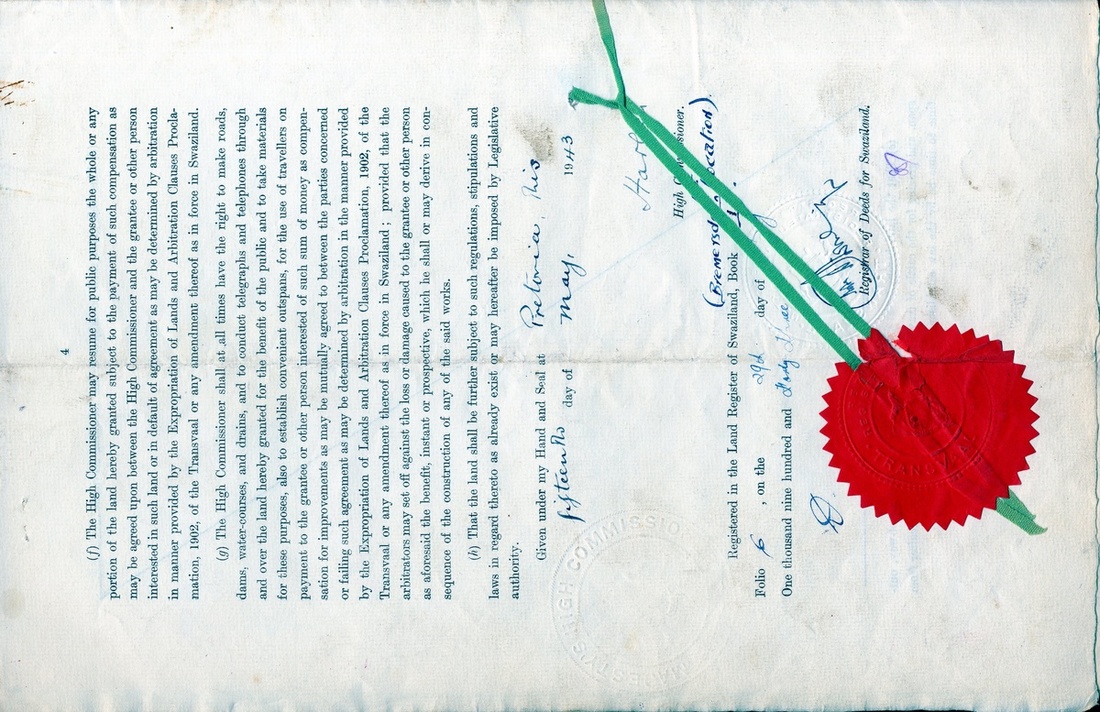 4
(f) The High Commissioner may resume for public purposes the whole or any
portion of the land hereby granted subject to the payment of such compensation as
may be agreed upon between the High Commissioner and the grantee or other person
interested in such land or in default of agreement as may be determined by arbitration
in manner provided by the Expropriation of Lands and Arbitration Clauses Procla-
mation, 1902, of the Transvaal or any amendment thereof as in force in Swaziland.
(g) The High Commissioner shall at all times have the right to make roads,
dams, water-courses, and drains, and to conduct telegraphs and telephones through
and over the land hereby granted for the benefit of the public and to take materials
for these purposes, also to establish convenient outspans, for the use of travellers on
payment to the grantee or other person interested of such sum of money as compen-
sation for improvements as may be mutually agreed to between the parties concerned
or failing such agreement as may be determined by arbitration in the manner provided
by the Expropriation of Lands and Arbitration Clauses Proclamation, 1902, of the
Transvaal or any amendment thereof as in force in Swaziland; provided that the
arbitrators may set off against the loss or damage caused to the grantee or other person
as aforesaid the benefit, instant or prospective, which he shall or may derive in con-
sequence of the construction of any of the said works.
(h) That the land shall be further subject to such regulations, stipulations and
laws in regard thereto as already exist or may hereafter be imposed by Legislative
authority.
Given under my Hand and Seal at Pretoria, this
fifteenth day of May, 1943
High Commissioner.
Registered in the Land Register of Swaziland, Book
Folio 6, on the 29th day of
One thousand nine hundred and forty three
Registrar of Deeds for Swaziland.
MAJESTY'S HIGH COMMISS
TRANSVAAL